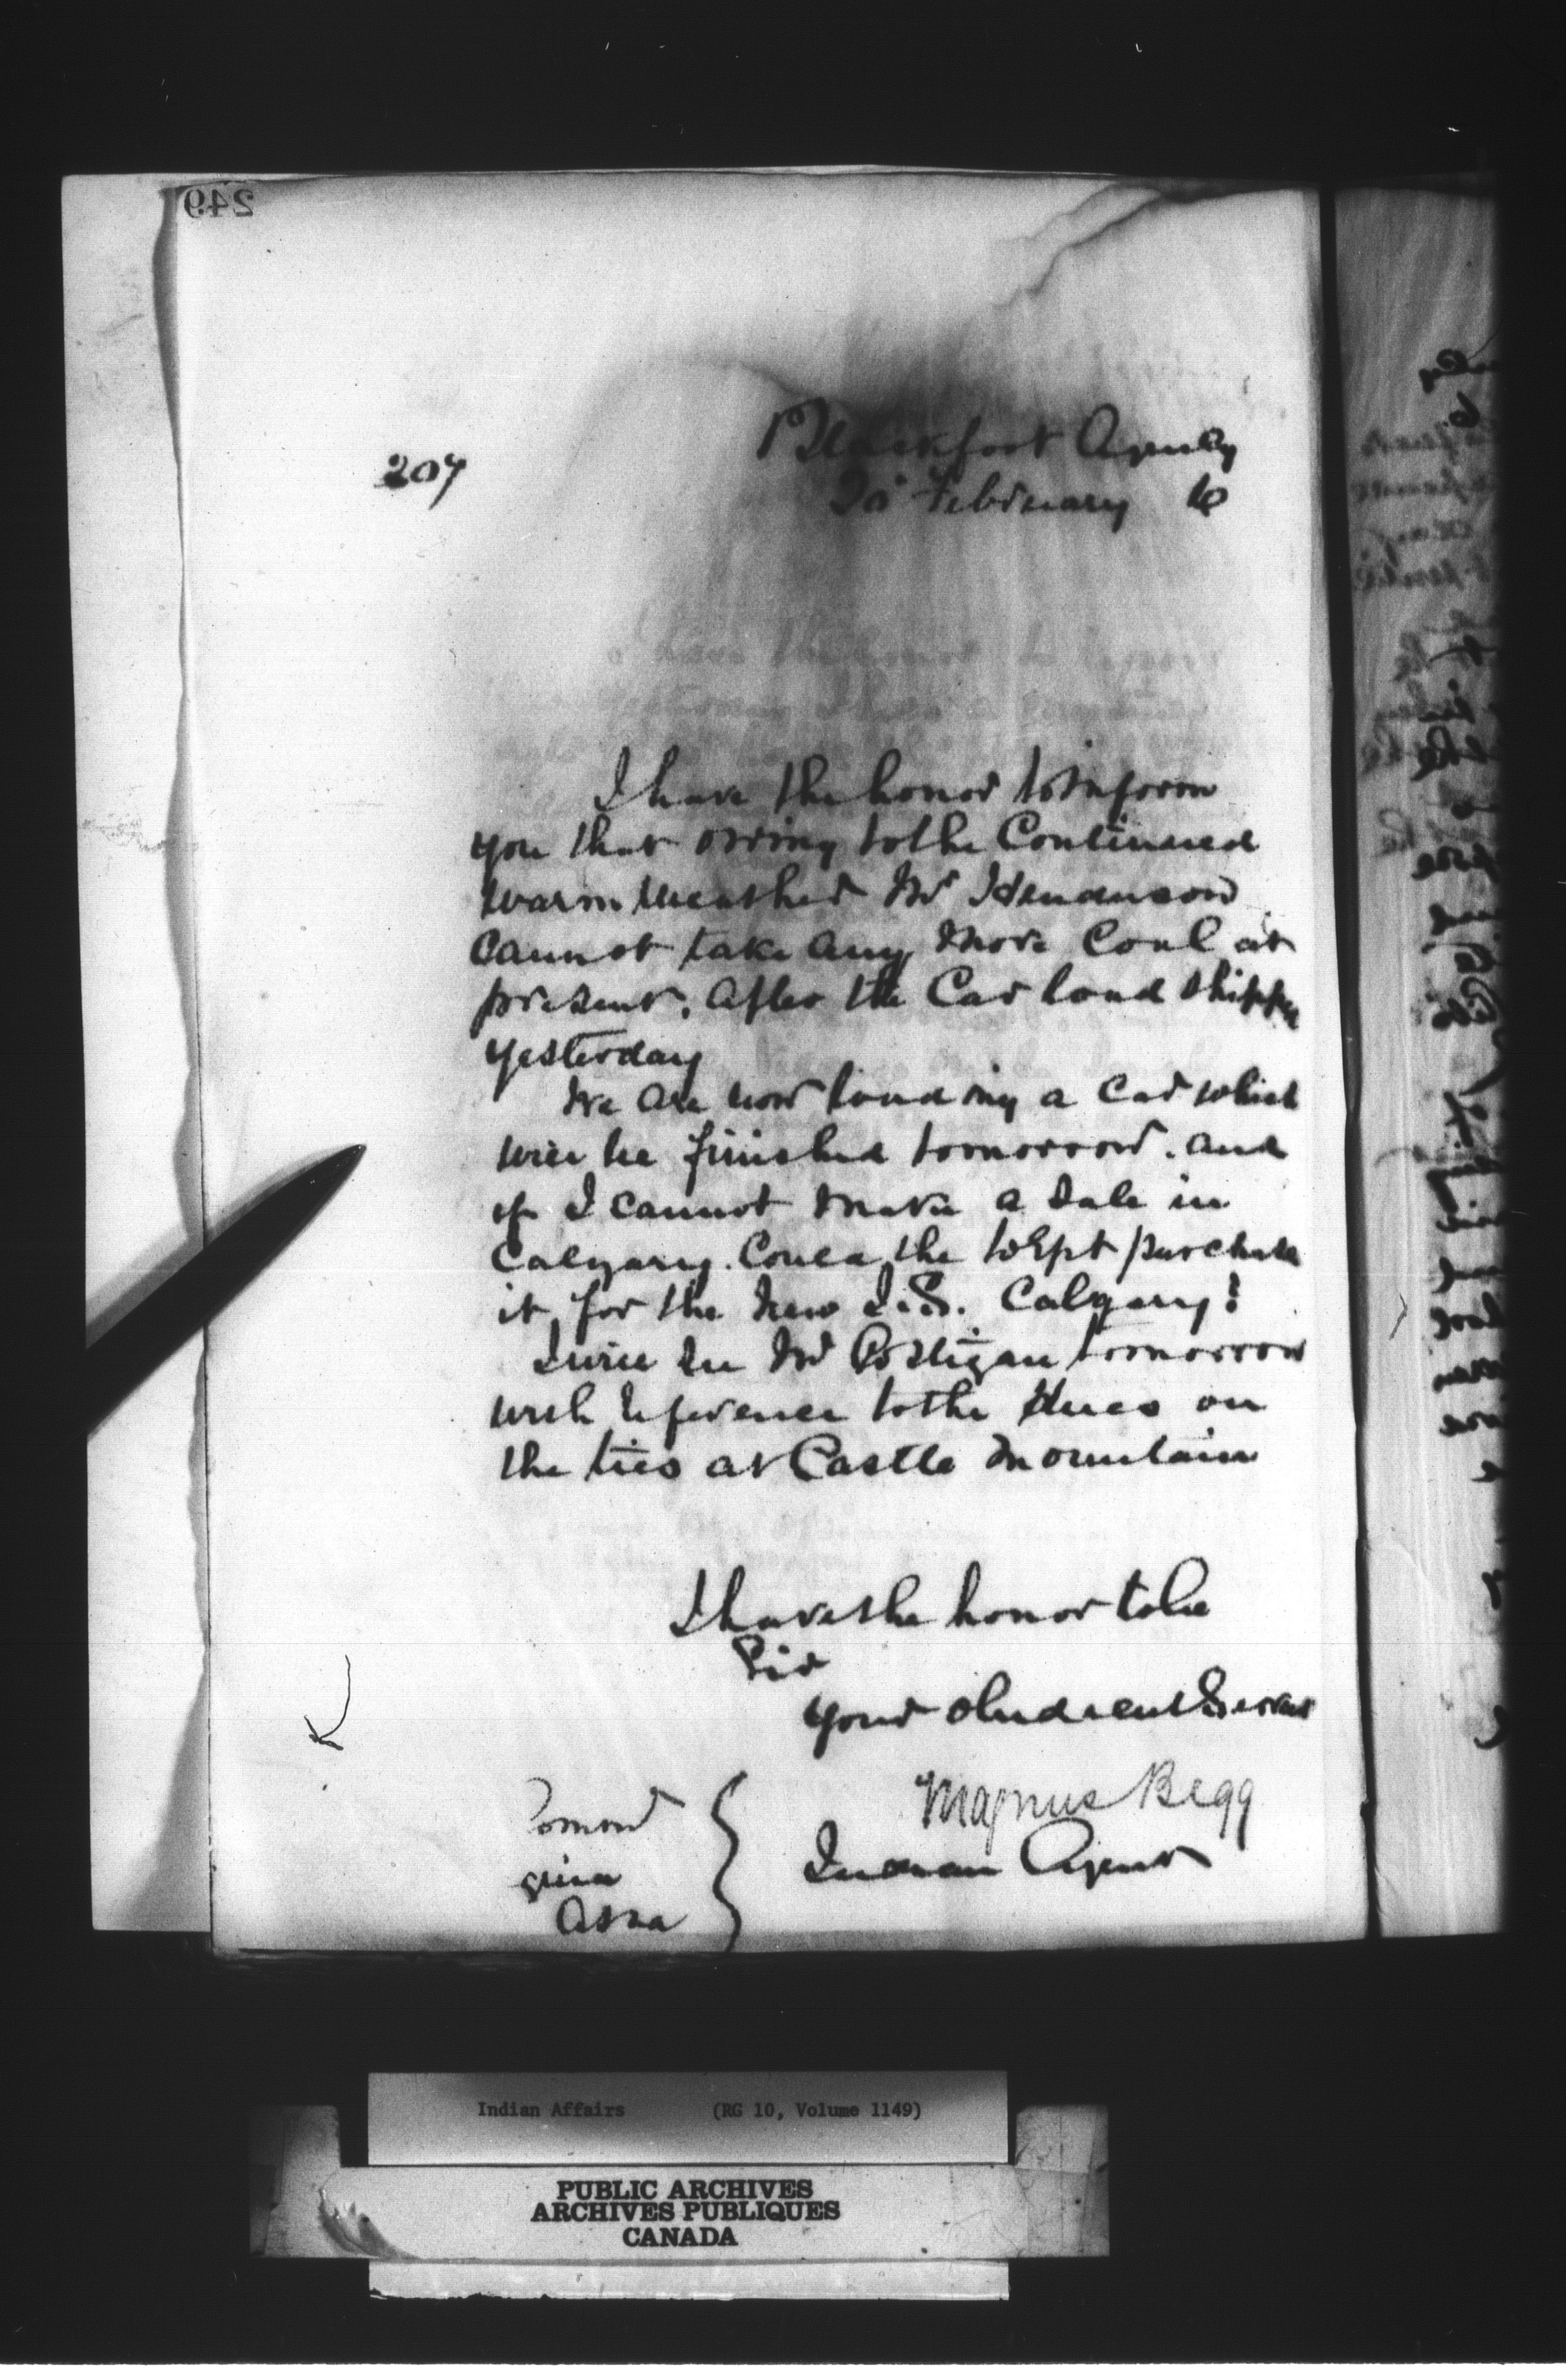 249
207
Blackfoot Agency
20 February
I have the honor to inform
you that owing to the Continued
warm weather Mr Henderson
cannot take any more Coal at
present, after the Car load shipped
yesterday
We are now loading a Car which
will be finished tomorrow. and
if I cannot make a Sale in
Calgary. Could the Dept purchase
it, for the new I.S. Calgary?
I will see Mr Costigan tomorrow
with reference to the dues on
the ties at Castle Mountain
I have the honor to be
Sir
Your obedient Servant
Magnus Begg
Indian Agent
gina
Assa
Indian Affairs (RG 10, Volume 1149)
PUBLIC ARCHIVES
ARCHIVES PUBLIQUES
CANADA